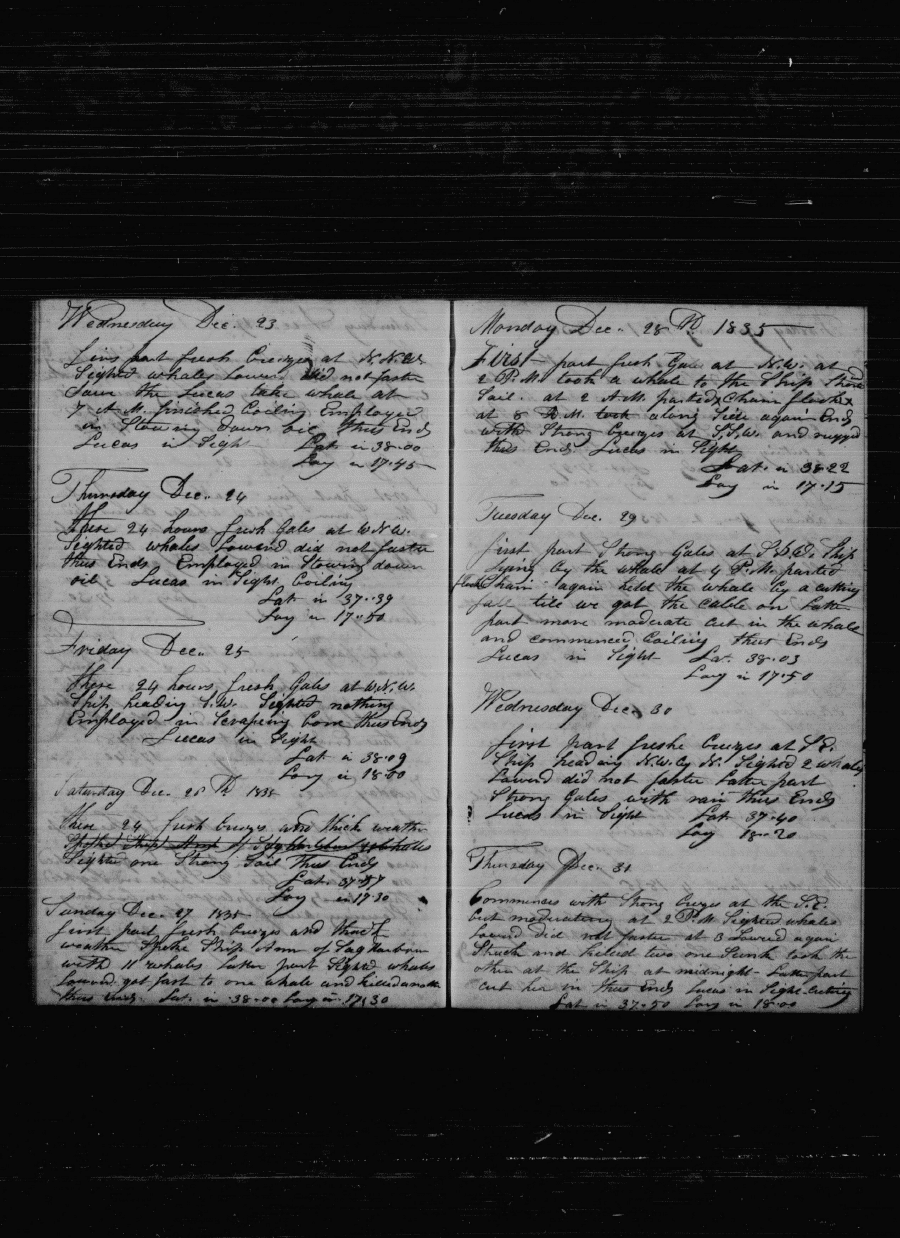 Wednesday Dec. 23
first part fresh Breezes at N.N.W.
Sighted whales Lowerd did not fasten
Saw the Lucas take whale at
7 A.M. finished Boiling Employed
in Stowing down oil thus Ends
Lucas in Sight Lat in 38-00
Long in 17-45
Thursday Dec. 24
These 24 hours fresh Gales at W.N.W.
Sighted whales Lowerd did not fasten
thus Ends Employed in Stowing down
oil Lucas in Sight Boiling
Lat in 37-39
Long in 17-50
Friday Dec. 25
These 24 hours fresh Gales at W.N.W.
Ship heading S.W. Sighted nothing
Employed in Scraping bone thus Ends
Lucas in Sight
Lat in 38-09
Long in 18-00
Saturday Dec. 26 Th 1835
these 24 fresh Breezes with thick weather
Spoke Ship Ann of Sag harbour
Sighted one Strang Sail Thus Ends
Lat. 37-57
Long in 17-30
Sunday Dec. 27 1835
first part fresh Breezes and thick
weather Spoke Ship Ann of Sag harbour
with 11 whales Latter part Sighted whales
Lowerd got fast to one whale and killed another
thus Ends Lat. in 38-00 Long in 17-30
Monday Dec. 28 Th 1835
First part fresh Gales at N.W. at
2 P.M. took a whale to the Ship
Sail. at 2 A.M. parted Chain
at 8 A.M. took along Side again Ends
with Strong Breezes at S.S.W. and rugged
thus Ends Lucas in Sight
Lat. in 38-22
Long in 17-15
Tuesday Dec. 29
first part Strong Gales at Ship
Lying by the whale at 4 P.M. parted
fluke Chain again held the whale by a cutting
fall till we got the cable on Latter
part more moderate Cut in the whale
and commenced Boiling thus Ends
Lucas in Sight Lat. 38-03
Long in 17-50
Wednesday Dec. 30
first part freshe Breezes at S.E.
Ship heading N.W. by N. Sighted 2 whales
Lowerd did not fasten Latter part
Strong Gales with rain thus Ends
Lucas in Sight Lat. 37-40
Long 18-20
Thursday Dec. 31
Commences with Strong Breezes at the S.E.
but moderating at 2 P.M. Sighted whales
Lowerd did not fasten at 3 Lowerd again
Struck and killed two one Sunk took the
other at the Ship at midnight Latter part
cut her in thus Ends Lucas in Sight Cutting
Lat in 37-50 Long in 18-00